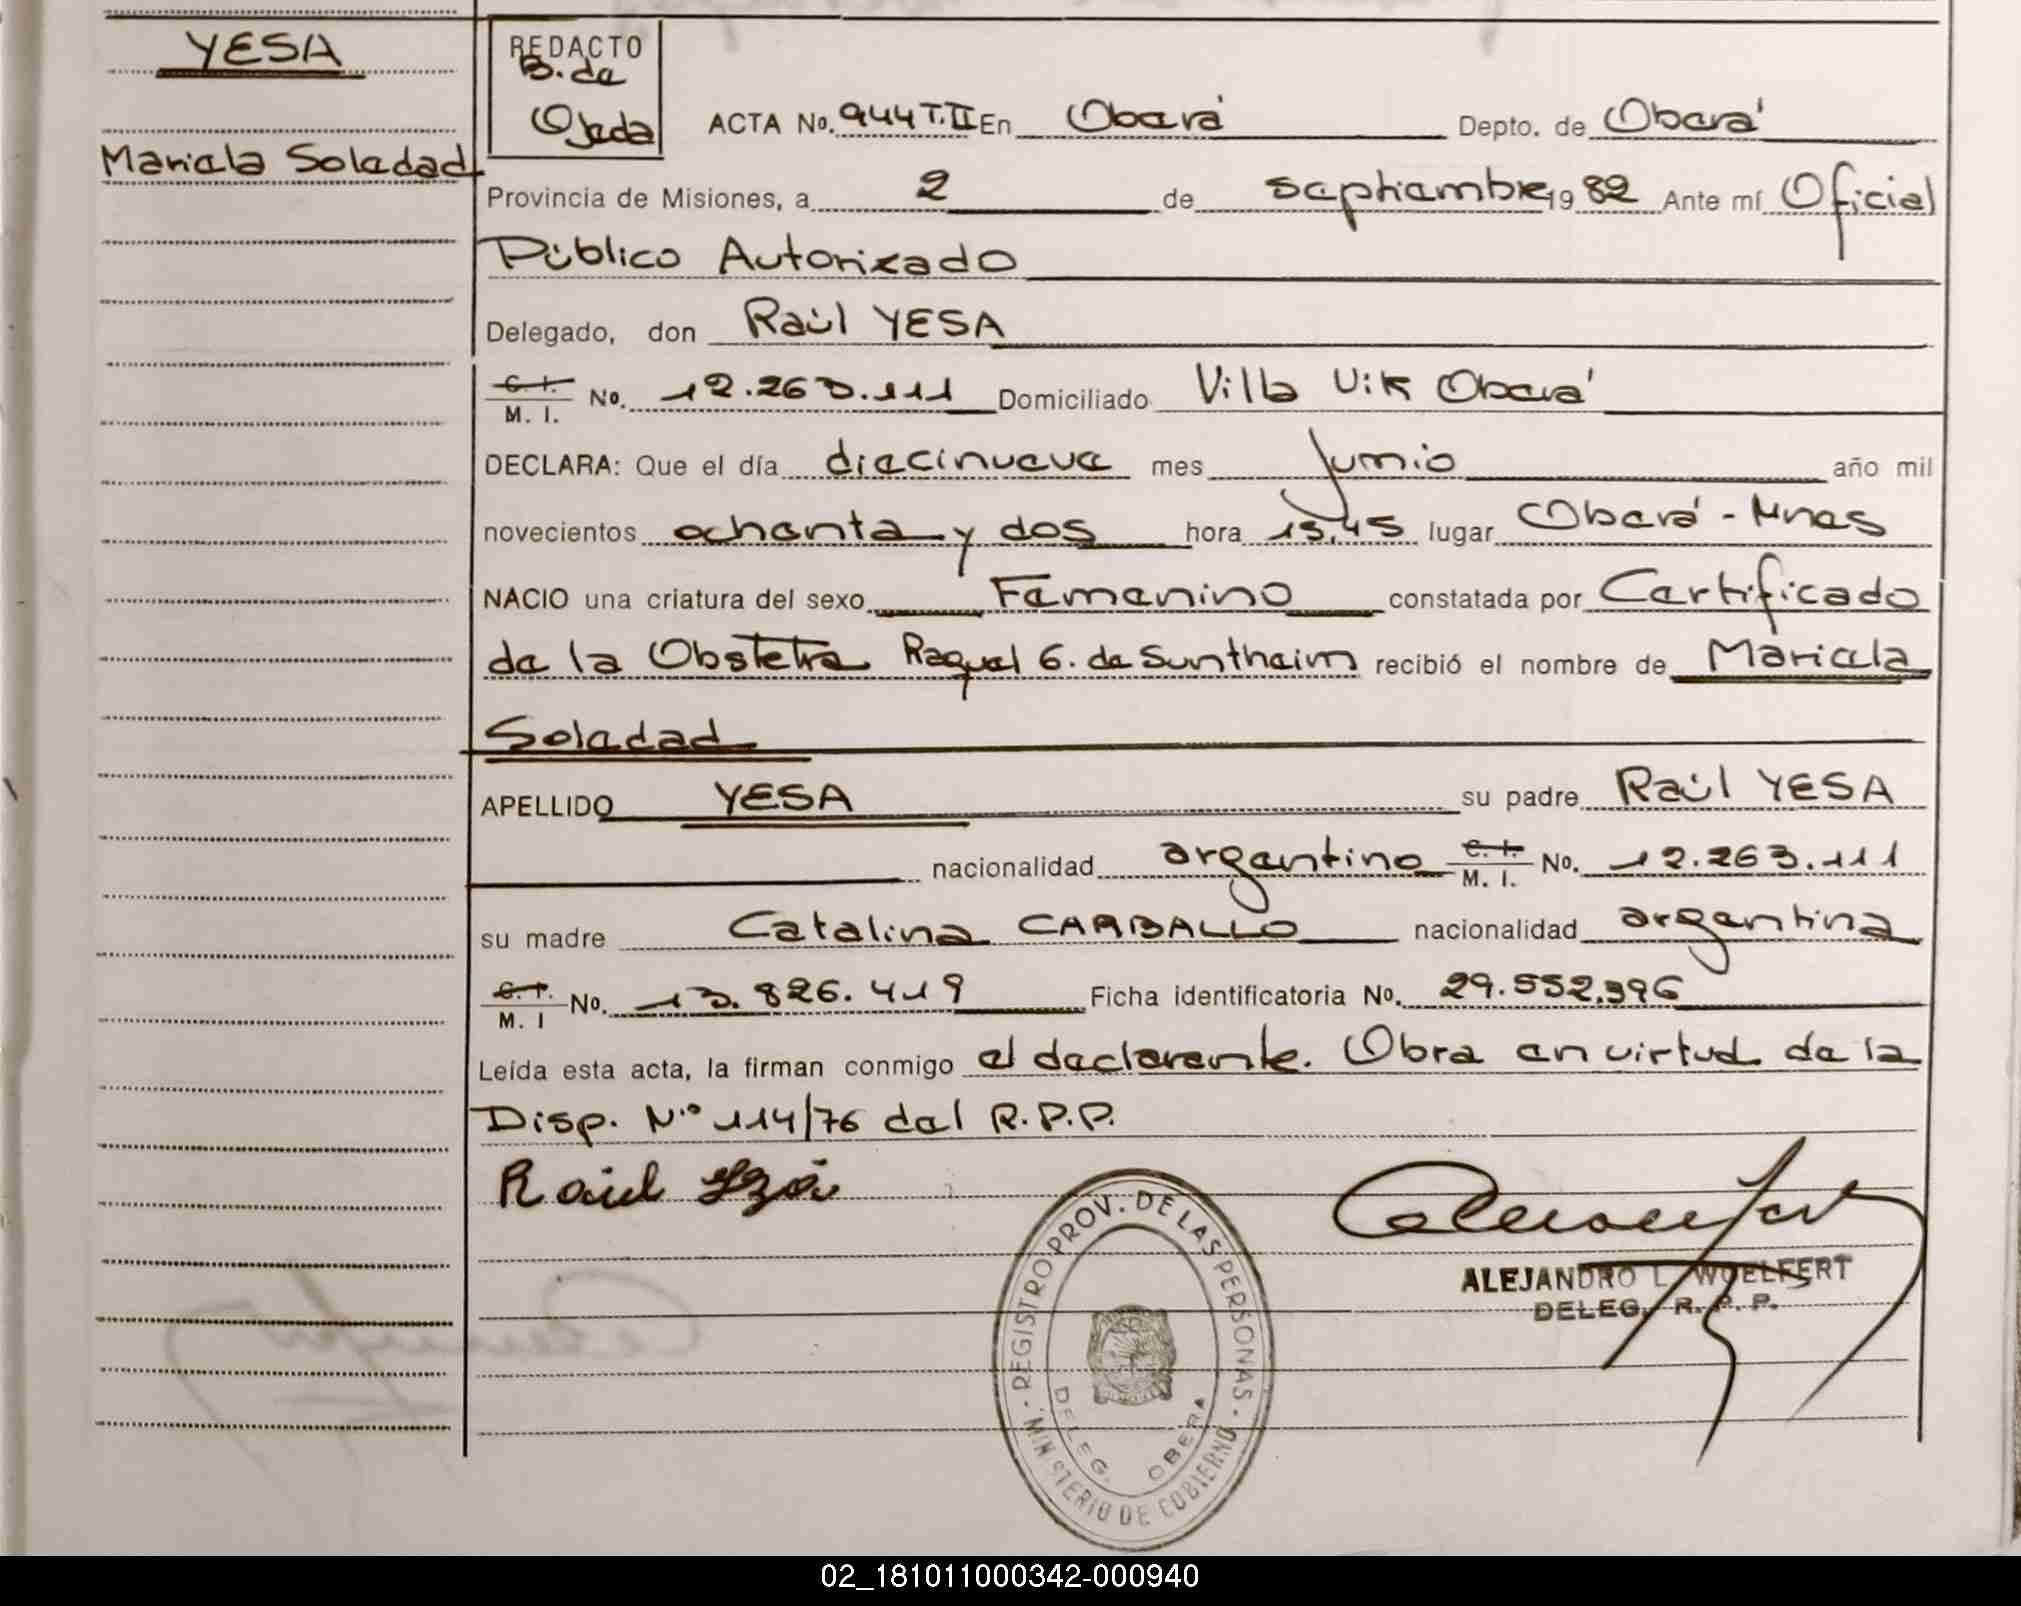 YESA
Mariela Soledad
REDACTO
B. de
Ojeda
ACTA No. 944 T.II En Oberá Depto. de Oberá
Provincia de Misiones, a 2 de septiembre 19 82 Ante mí Oficial
Público Autorizado
Delegado, don Raúl YESA
C. I. / M. I. No. 12.263.111 Domiciliado Villa Vik Oberá
DECLARA: Que el día diecinueve mes Junio año mil
novecientos ochenta y dos hora 15,45 lugar Oberá - Mnes
NACIO una criatura del sexo Femenino constatada por Certificado
de la Obstetra Raquel G. de Suntheim recibió el nombre de Mariela
Soledad
APELLIDO YESA su padre Raúl YESA
nacionalidad argentino C. I. / M. I. No. 12.263.111
su madre Catalina CARBALLO nacionalidad argentina
C. I. / M. I No. 13.826.419 Ficha identificatoria No. 29.552.396
Leída esta acta, la firman conmigo el declarante. Obra en virtud de la
Disp. N° 114/76 del R.P.P.
Raúl
REGISTRO PROV. DE LAS PERSONAS
MINISTERIO DE GOBIERNO
DELEG. OBERA
ALEJANDRO L. WOELFERT
DELEG. R. P. P.
02_181011000342-000940